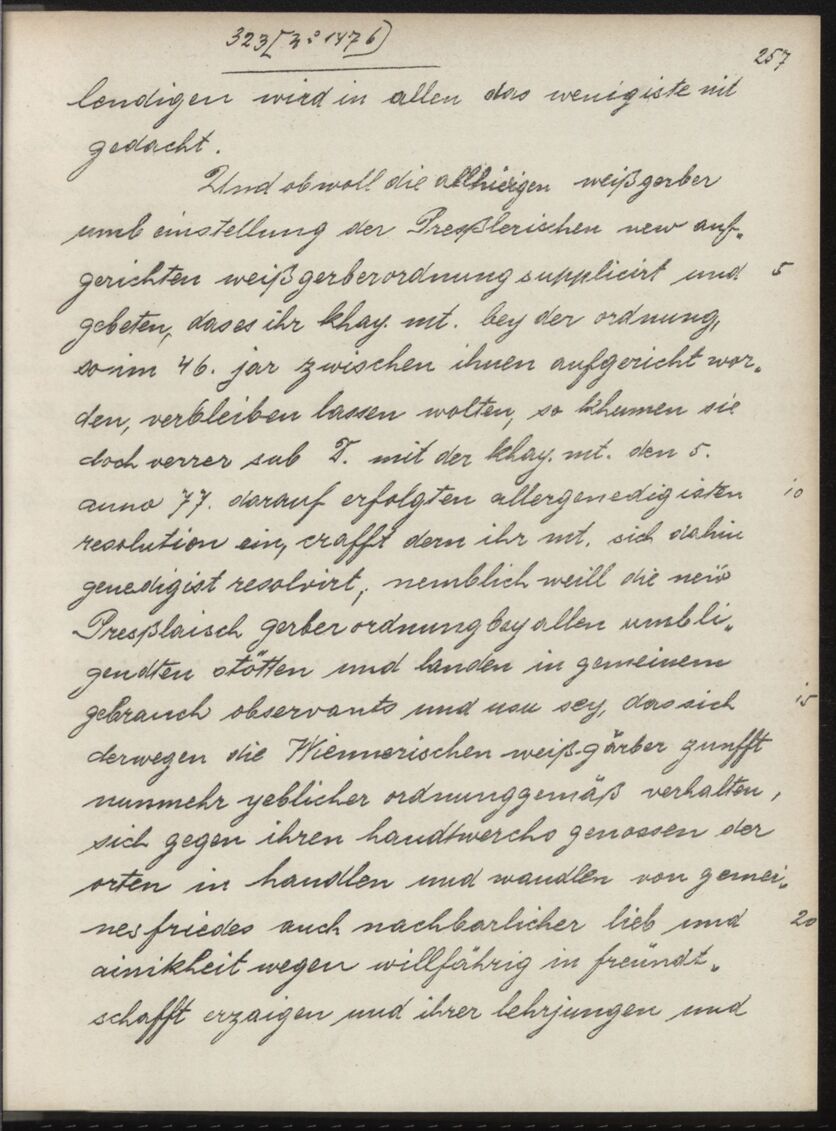 323 [Z° 1476]
257
lendigen wird in allen das wenigiste nit
gedacht.
Und obwoll die allhieigen weißgerber
umb einstellung der Presßlerischen new auf„
gerichten weißgerberordnung supplicirt und 5
gebeten, das es ihr khay. mt. bey der ordnung,
so im 46. jar zwischen ihnen aufgericht wor„
den, verbleiben lassen wolten, so khumen sie
doch verrer sub D. mit der khay. mt. den 5.
anno 77. darauf erfolgten allergenedigisten 10
resolution ein, crafft dern ihr mt. sich dahin
genedigist resolvirt, nemblich weill die neü
Presßlaisch gerberordnung bey allen umbli„
gendten stötten und landen in gemeinem
gebrauch observants und usu sey, das sich 15
derwegen die Wiennerischen weiß-gärber zunfft
nunmehr yeblicher ordnung gemäß verhalten,
sich gegen ihren handtwerchs genossen der
orten in handlen und wandlen von gemei„
nes friedes auch nachbarlicher lieb und 20
ainikheit wegen willfährig in freündt„
schafft erzaigen und ihrer lehrjungen und